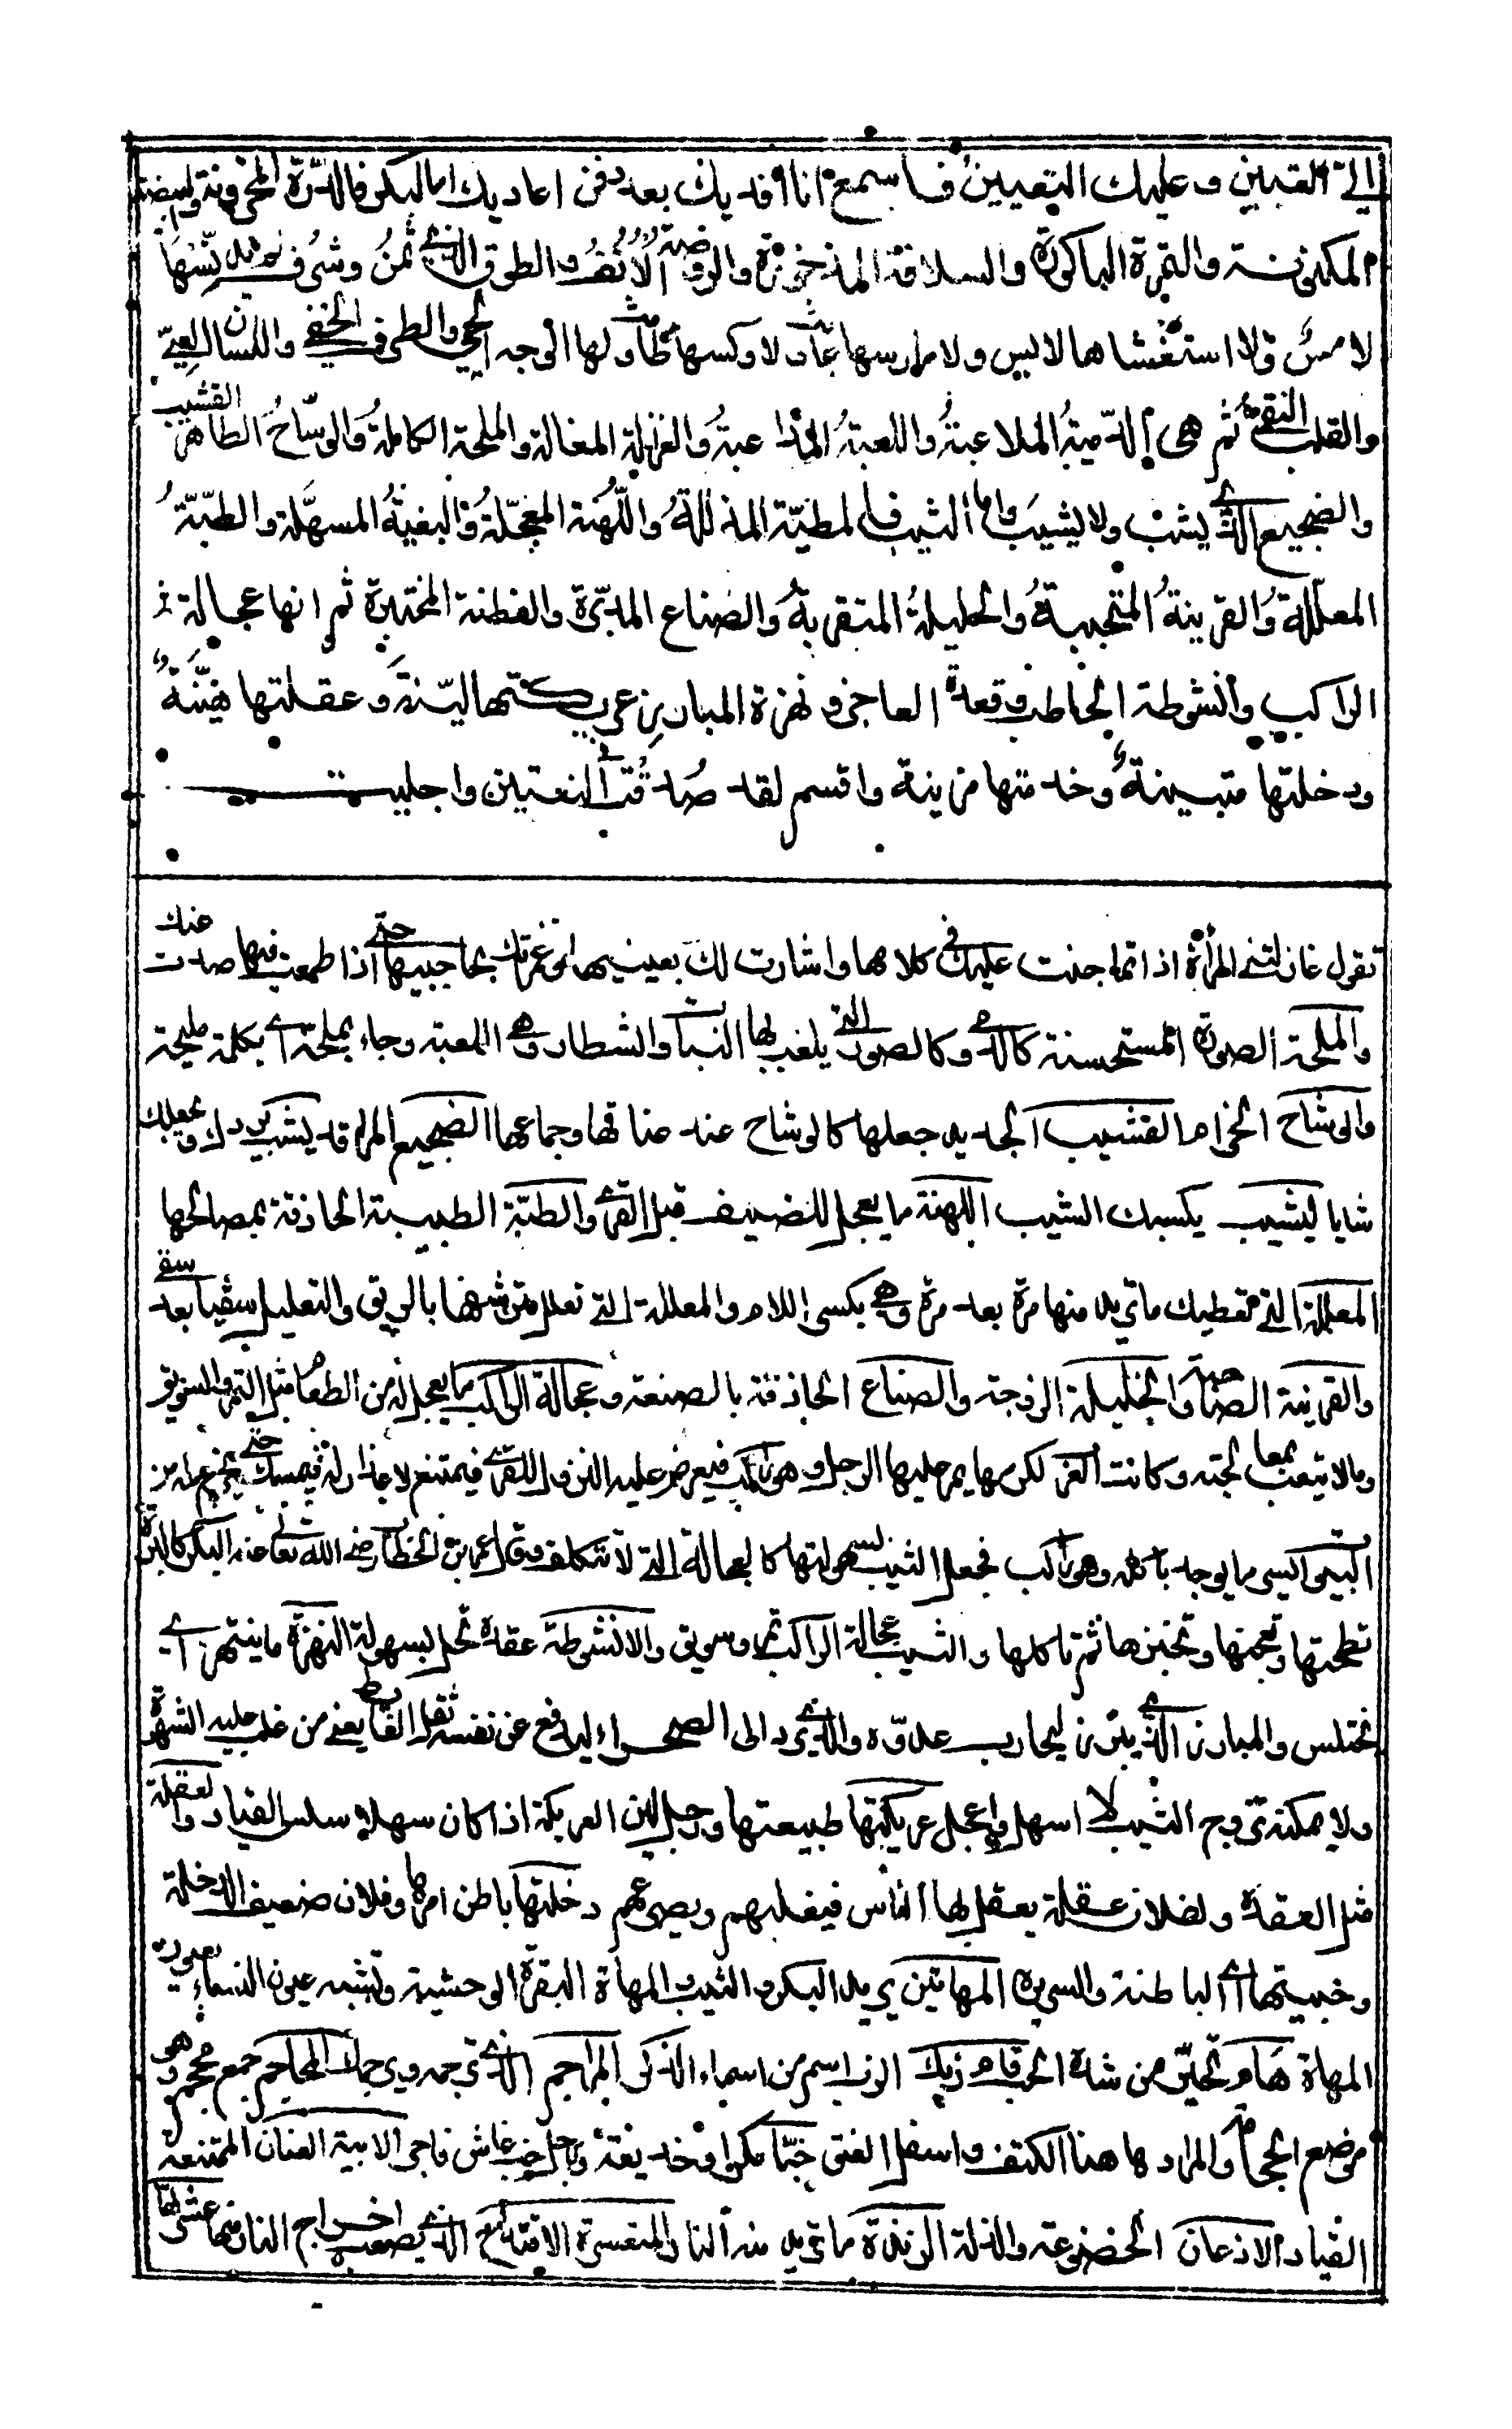 إليّ التبيين وعليك التعيين فاسمع انا افديك بعد دفن اعاديك اما البكر فالدّرّة المخزونة والبيضة
المكنونة والثمرة الباكورة والسلافة المذخورة والروضة الأنف والطوق الذي ثمن وشرف لم يدنّسها
لامس ولا استغشاها لابس ولا مارسها عابث لا وكسها طامث ولها الوجه الحيي والطرف الخفي واللسان العييّ
والقلب النقي ثم هي الدّمية الملاعبة واللعبة المداعبة والغزالة المغازلة والملحة الكاملة والوشاح الطاهر القشيب
والضجيع الذي يشبّ ولا يشيب واما الثيب فالمطيّة المذللة واللّهنة المعجّلة والبغية المسهّلة والطبّة
المعلّلة والقرينة المتحببة والخليلة المتقربة والصناع المدبّرة والفطنة المختبرة ثم انها عجالة
الراكب وأنشوطة الخاطب وقعدة العاجز ونهزة المبارز عريكتها ليّنة وعقلتها هيّنة
ودخلتها متبينة وخدمتها مزينة واقسم لقد صدقت في النعتين واجليت
تقول غازلتني المرأة اذا تماجنت عليك في كلامها واشارت لك بعينيها او غمزتك بحاجبيها حتى اذا طمعت فيها صدت عنك
والملحة الصورة المستحسنة كالدمى وكالصور التي يلعب لها النبات والشطار وهي اللعبة وجاء بملحة اي بكلمة مليحة
والوشاح الحزام القشيب الجديد جعلها كالوشاح عند عناقها وجماعها الضجيع المراقد يشب يردك ويجعلك
شابا يشيب يكسبك الشيب اللهنة ما يعجل للضيف قبل القرى والطبّة الطبيبة الحاذقة بمصالحها
المعللة التي تعطيك ما تريد منها مرة بعد مرة وهي بكسر اللام والمعللة التي تعلل مترشفها بالريق والتعليل سقيا بعد سقي
والقرينة الصاحبة والخليلة الزوجة والصناع الحاذقة بالصنعة وعجالة الراكب ما يعجل له من الطعام مثل التمر والسويق
وما لا يتعب بمعالجته وكانت العرب لكرمها يمر عليها الرجل وهو راكب فيعرض عليه النزول للقرى فيمتنع
اليسير ما يوجد باكله وهو راكب فجعل الثيب لسهولتها كالعجالة التي لا تتكلف وقال عمر بن الخطاب رضي الله تعالى عنه البكر كالبرة
تطحنها وتعجنها وتخبزها ثم تاكلها والثيب عجالة الراكب تمر وسويق والانشوطة عقدة تحل بسهولة النهزة ما ينتهز اي
يختلس والمبارز الذي يبرز ليحارب عدوّه والذي الى الصحراء ليدفع عن نفسه ثقل الغائط يعني من غلب عليه الشهوة
ولا يمكنه تزوج الثيب لانها اسهل واعجل عريكتها طبيعتها ورجل لين العريكة اذا كان سهلا سلس القياد والعقلة
مثل العقدة ولفلان عقلة يعقل بها الناس فيغلبهم ويصرعهم دخلتها باطن امرها وفلان ضعيف الدخلة
وخبيتها اي الباطنة والسريرة المهاتين يريد البكر والثيب المهاة البقرة الوحشية وتشبه عيون النساء بعيون
المهاة هام تحير من شدة الحب قام زبك الزب اسم من اسماء الذكر المراجم الذي ترجمه ويرجمك المحاجم جمع محجم وهو
موضع الحجم والمراد ها هنا الكتف واسفل العنق خبّا مكرا وخديعة ورجل خب غاش فاجر الابية العنان الممتنعة
القياد الاذعان الخضوع والذلة الزندة ما تريد منه النار والمتعسرة الاقتداح الذي يصعب اخراج النار منها عشرتها